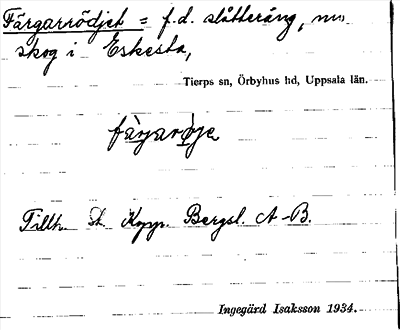 Färgarrödjet = f.d. slåtteräng, nu
skog i Eskesta,
Tierps sn, Örbyhus hd, Uppsala län.
färgaröje
Tillh. St. Kopp. Bergsl. A-B.
Ingegärd Isaksson 1934.